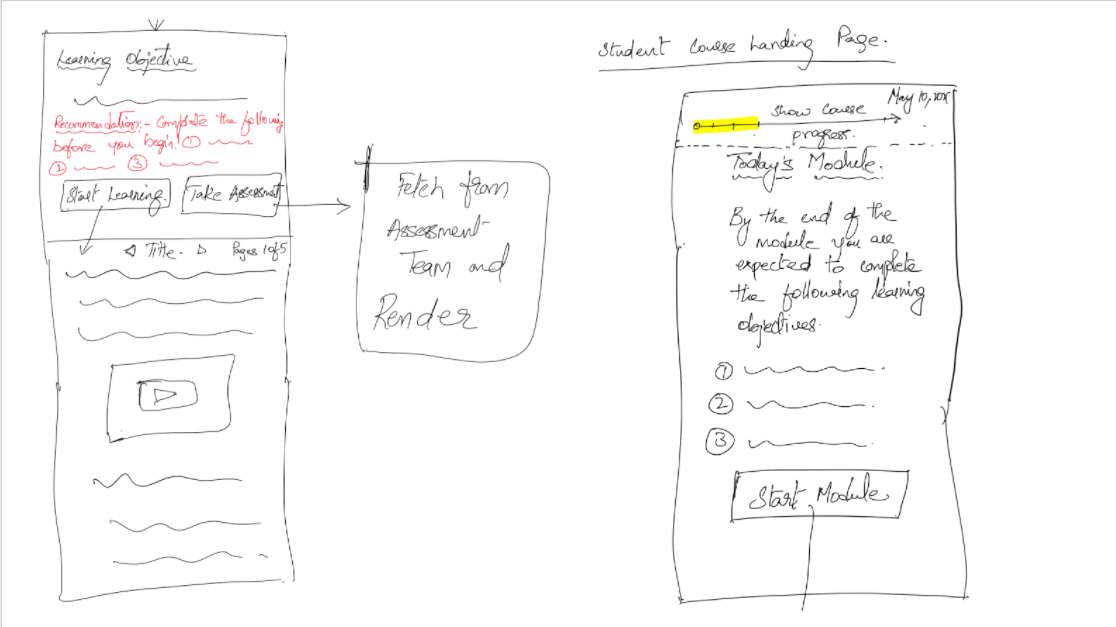 Learning Objective
Recommendation:- Complete the following
before you begin! ①
② ③
Start Learning.
Take Assessment
◁ Title. ▷ Pages 1 of 5
Fetch from
Assessment
Team and
Render
Student Course Landing Page.
May 10,
Show Course
progress.
Today's Module.
By the end of the
module you are
expected to complete
the following learning
objectives.
①
②
③
Start Module